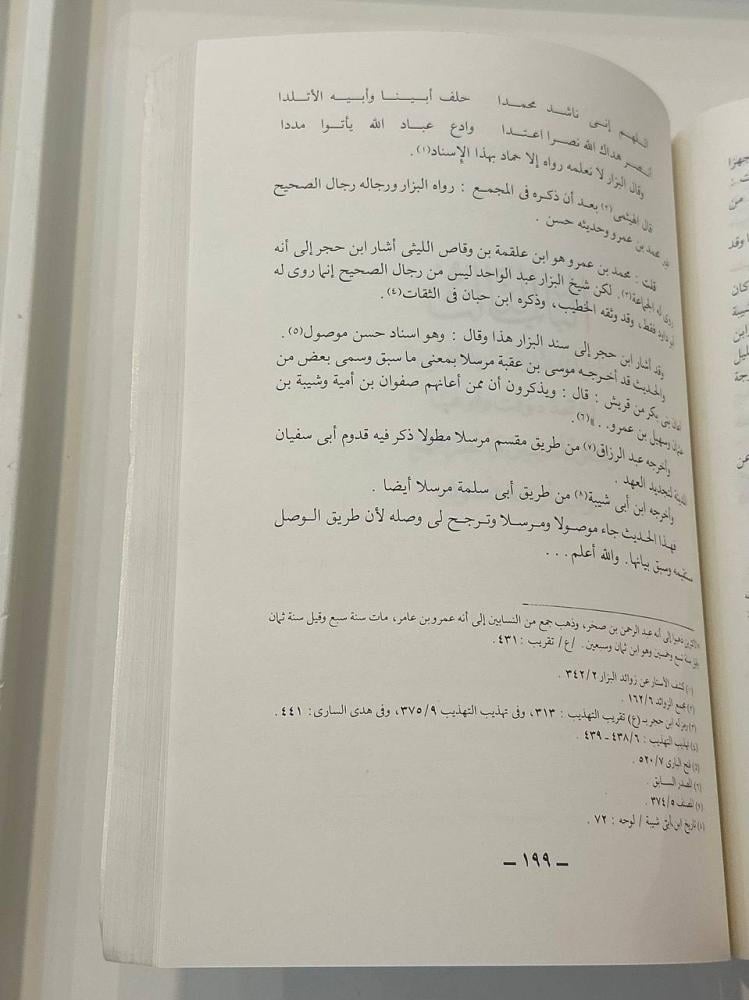 اللهم إنى ناشد محمدا حلف أبينا وأبيه الأتلدا
انصر هداك الله نصرا اعتدا وادع عباد الله يأتوا مددا
وقال البزار لا نعلمه رواه إلا حماد بهذا الإسناد(١).
قال الهيثمى(٢) بعد أن ذكره فى المجمع : رواه البزار ورجاله رجال الصحيح
غير محمد بن عمرو وحديثه حسن .
قلت : محمد بن عمرو هو ابن علقمة بن وقاص الليثى أشار ابن حجر إلى أنه
روى له الجماعة(٣). لكن شيخ البزار عبد الواحد ليس من رجال الصحيح إنما روى له
أبو داود فقط، وقد وثقه الخطيب، وذكره ابن حبان فى الثقات(٤).
وقد أشار ابن حجر إلى سند البزار هذا وقال : وهو اسناد حسن موصول(٥).
والحديث قد أخرجه موسى بن عقبة مرسلا بمعنى ما سبق وسمى بعض من
أعان بنى بكر من قريش : قال : ويذكرون أن ممن أعانهم صفوان بن أمية وشيبة بن
عثمان وسهيل بن عمرو. . »(٦).
وأخرجه عبد الرزاق(٧) من طريق مقسم مرسلا مطولا ذكر فيه قدوم أبى سفيان
المدينة لتجديد العهد .
وأخرجه ابن أبى شيبة(٨) من طريق أبى سلمة مرسلا أيضا .
فهذا الحديث جاء موصولا ومرسلا وترجح لى وصله لأن طريق الوصل
مستقيمه وسبق بيانها. والله أعلم . . .
الأكثرين ذهبوا إلى أنه عبد الرحمن بن صخر، وذهب جمع من النسابين إلى أنه عمرو بن عامر، مات سنة سبع وقيل سنة ثمان
وقيل سنة تسع وخمسين وهو ابن ثمان وسبعين . /ع/ تقريب : ٤٣١ .
(١) كشف الأستار عن زوائد البزار ٣٤٢/٢ .
(٢) مجمع الزوائد ١٦٢/٦ .
(٣) رمز له ابن حجر بـ (ع) تقريب التهذيب : ٣١٣، وفى تهذيب التهذيب ٣٧٥/٩، وفى هدى السارى: ٤٤١ .
(٤) تهذيب التهذيب : ٤٣٨/٦ ـ ٤٣٩ .
(٥) فتح البارى ٥٢٠/٧ .
(٦) المصدر السابق .
(٧) المصنف ٣٧٤/٥ .
(٨) تاريخ ابن أبى شيبة / لوحه : ٧٢ .
ـ ١٩٩ ـ